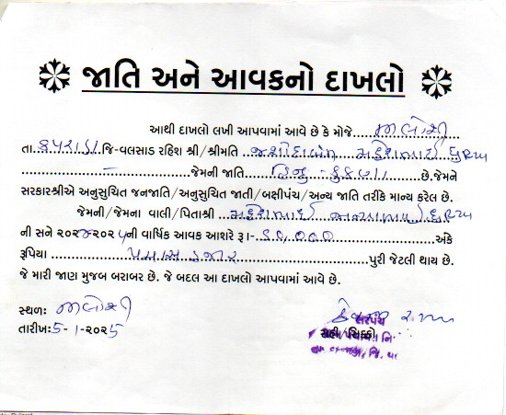 જાતિ અને આવકનો દાખલો
આથી દાખલો લખી આપવામાં આવે છે કે મોજે
તા. કપરાડા જિ-વલસાડ રહિશ શ્રી/શ્રીમતિ જશોદાબેન મહેશભાઈ
જેમની જાતિ હિન્દુ - કુકણા છે.જેમને
સરકારશ્રીએ અનુસુચિત જનજાતિ/અનુસુચિત જાતી/બક્ષીપંચ/અન્ય જાતિ તરીકે માન્ય કરેલ છે.
જેમની/જેમના વાલી/પિતાશ્રી મહેશભાઈ
ની સને ૨૦૨૪-૨૦૨૫ની વાર્ષિક આવક આશરે રૂા- ૫૦,૦૦૦ અંકે
રૂપિયા પચાસ હજાર પુરી જેટલી થાય છે.
જે મારી જાણ મુજબ બરાબર છે. જે બદલ આ દાખલો આપવામાં આવે છે.
સ્થળઃ
તારીખઃ 5-1-૨૦૨5
સરપંચ
સહી/સિક્કો